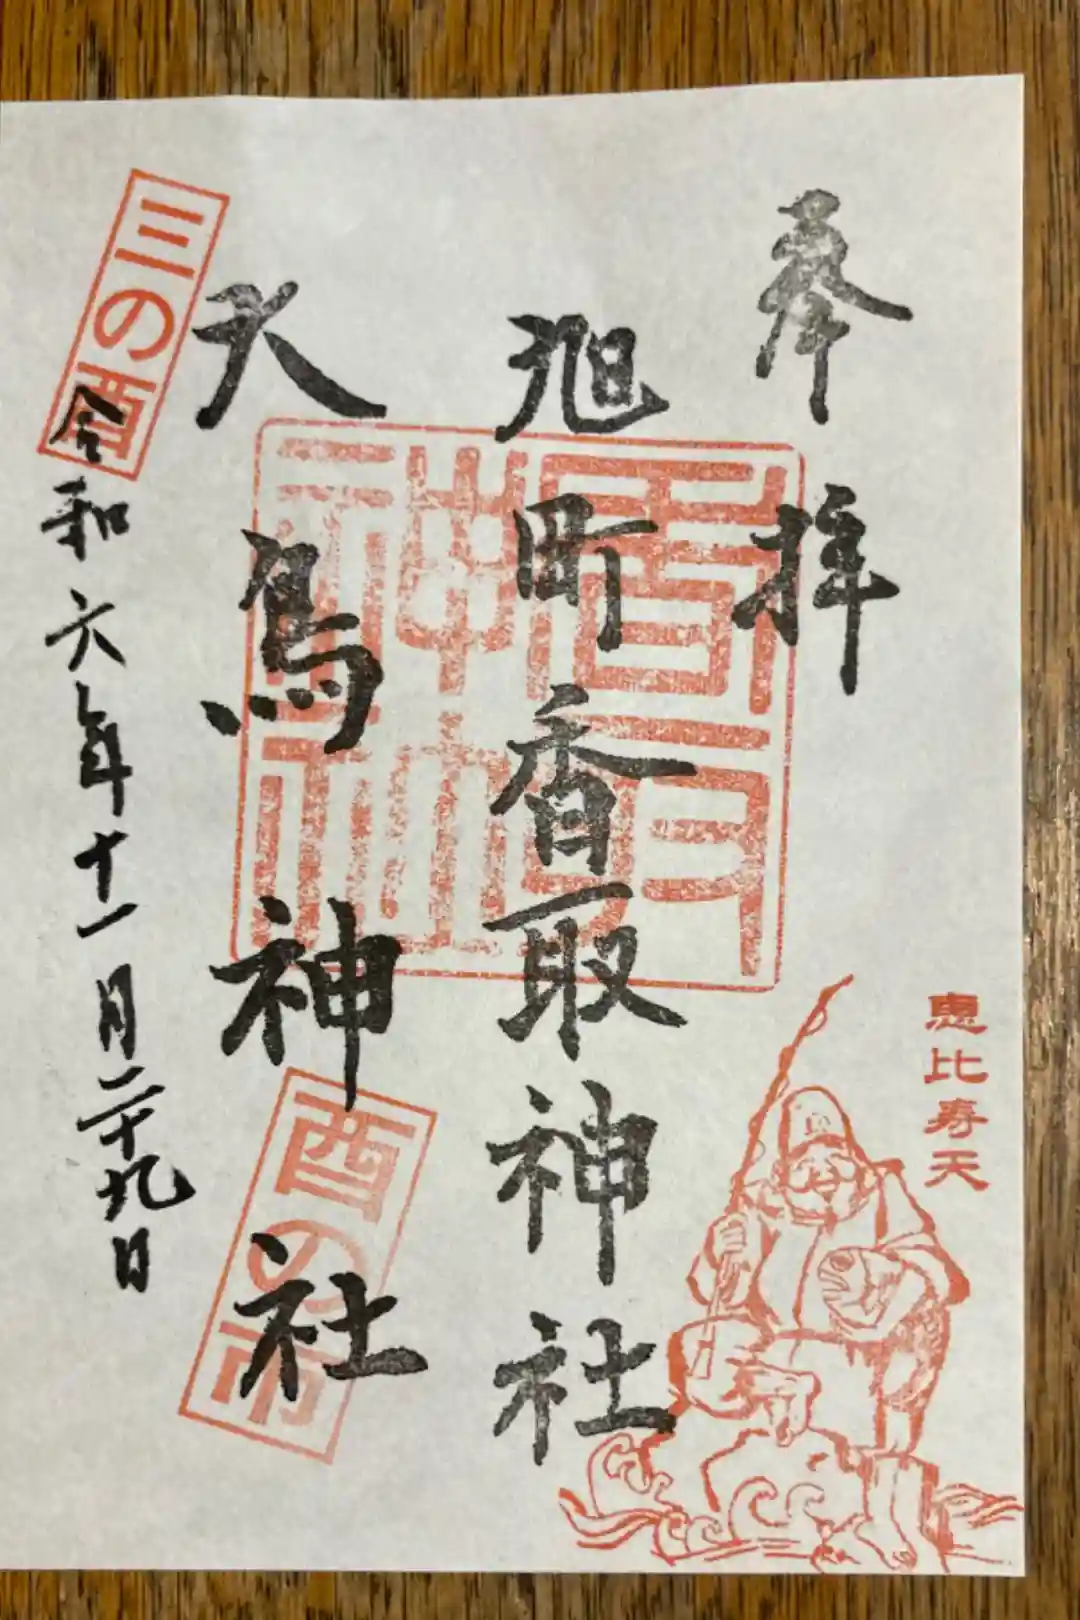 奉拝
恵比寿天
旭町香取神社
大鳥神社
酉の市
三の酉
令和六年十一月二十九日